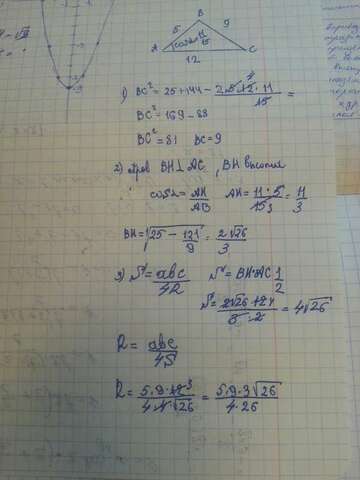 B
5
9
cosα 11/15
A
C
12
1) BC² = 25+144 - 2·5·12·11/15 =
BC² = 169 - 88
BC² = 81 BC = 9
2) пров BH⊥AC, BH высота
cosα = AH/AB AH = 11·5/15 3 = 11/3
BH = √25 - 121/9 = 2√26/3
3) S = abc/4R S = BH·AC 1/2
S = 2√26·12/3·2 = 4√26
R = abc/4S
R = 5·9·12 3/4·4·√26 = 5·9·3√26/4·26